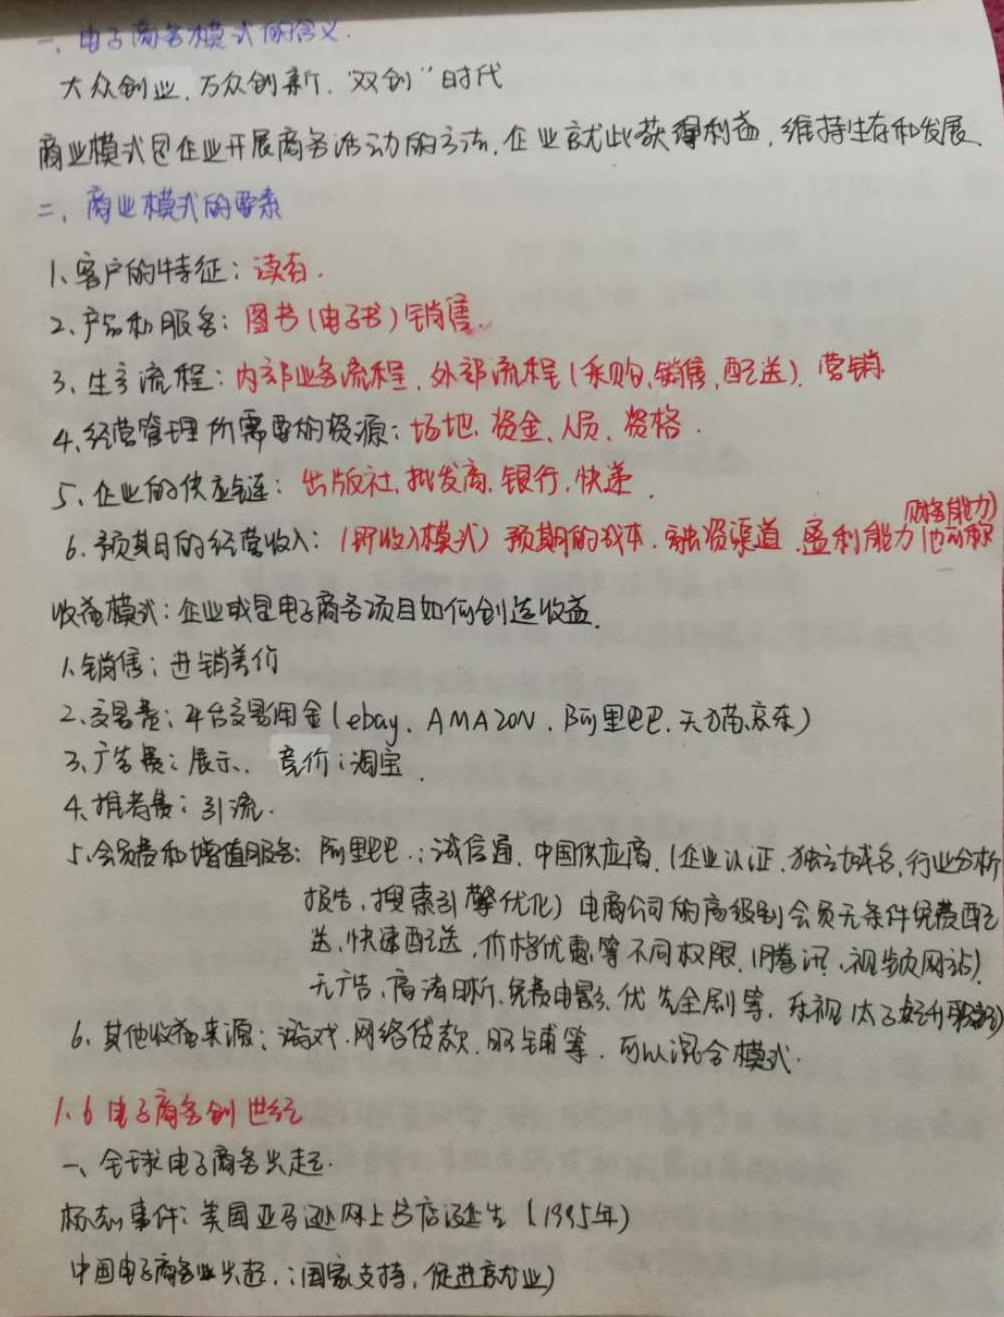 一、电子商务模式的含义.
大众创业、万众创新、“双创”时代
商业模式包企业开展商务活动的方法,企业就此获得利益,维持生存和发展.
二、商业模式的要素
1、客户的特征:读者.
2、产品和服务:图书(电子书)销售.
3、业务流程:内部业务流程、外部流程(采购、销售、配送)、营销
4、经营管理所需要的资源:场地、资金、人员、资格.
5、企业的供应链:出版社、批发商、银行、快递.
6、预期的经营收入:(即收入模式)预期的成本、融资渠道、盈利能力(也可称
财务能力)
收益模式:企业或是电子商务项目如何创造收益.
1、销售:进销差价
2、交易费:平台交易佣金(ebay、AMAZON、阿里巴巴、天猫、京东)
3、广告费:展示、竞价:淘宝.
4、推荐费:引流.
5、会员费和增值服务:阿里巴巴:诚信通、中国供应商、(企业认证、独立域名、行业分析
报告、搜索引擎优化)电商公司的高级别会员无条件免费配
送、快速配送、价格优惠等不同权限.(腾讯、视频网站)
无广告、高清晰、免费电影、优先全剧等,乐视
6、其他收益来源:游戏、网络贷款、服铺等.可以混合模式.
1.6电子商务创世纪
一、全球电子商务兴起.
标志事件:美国亚马逊网上书店诞生(1995年)
中国电子商务业兴起.:国家支持,促进就业)